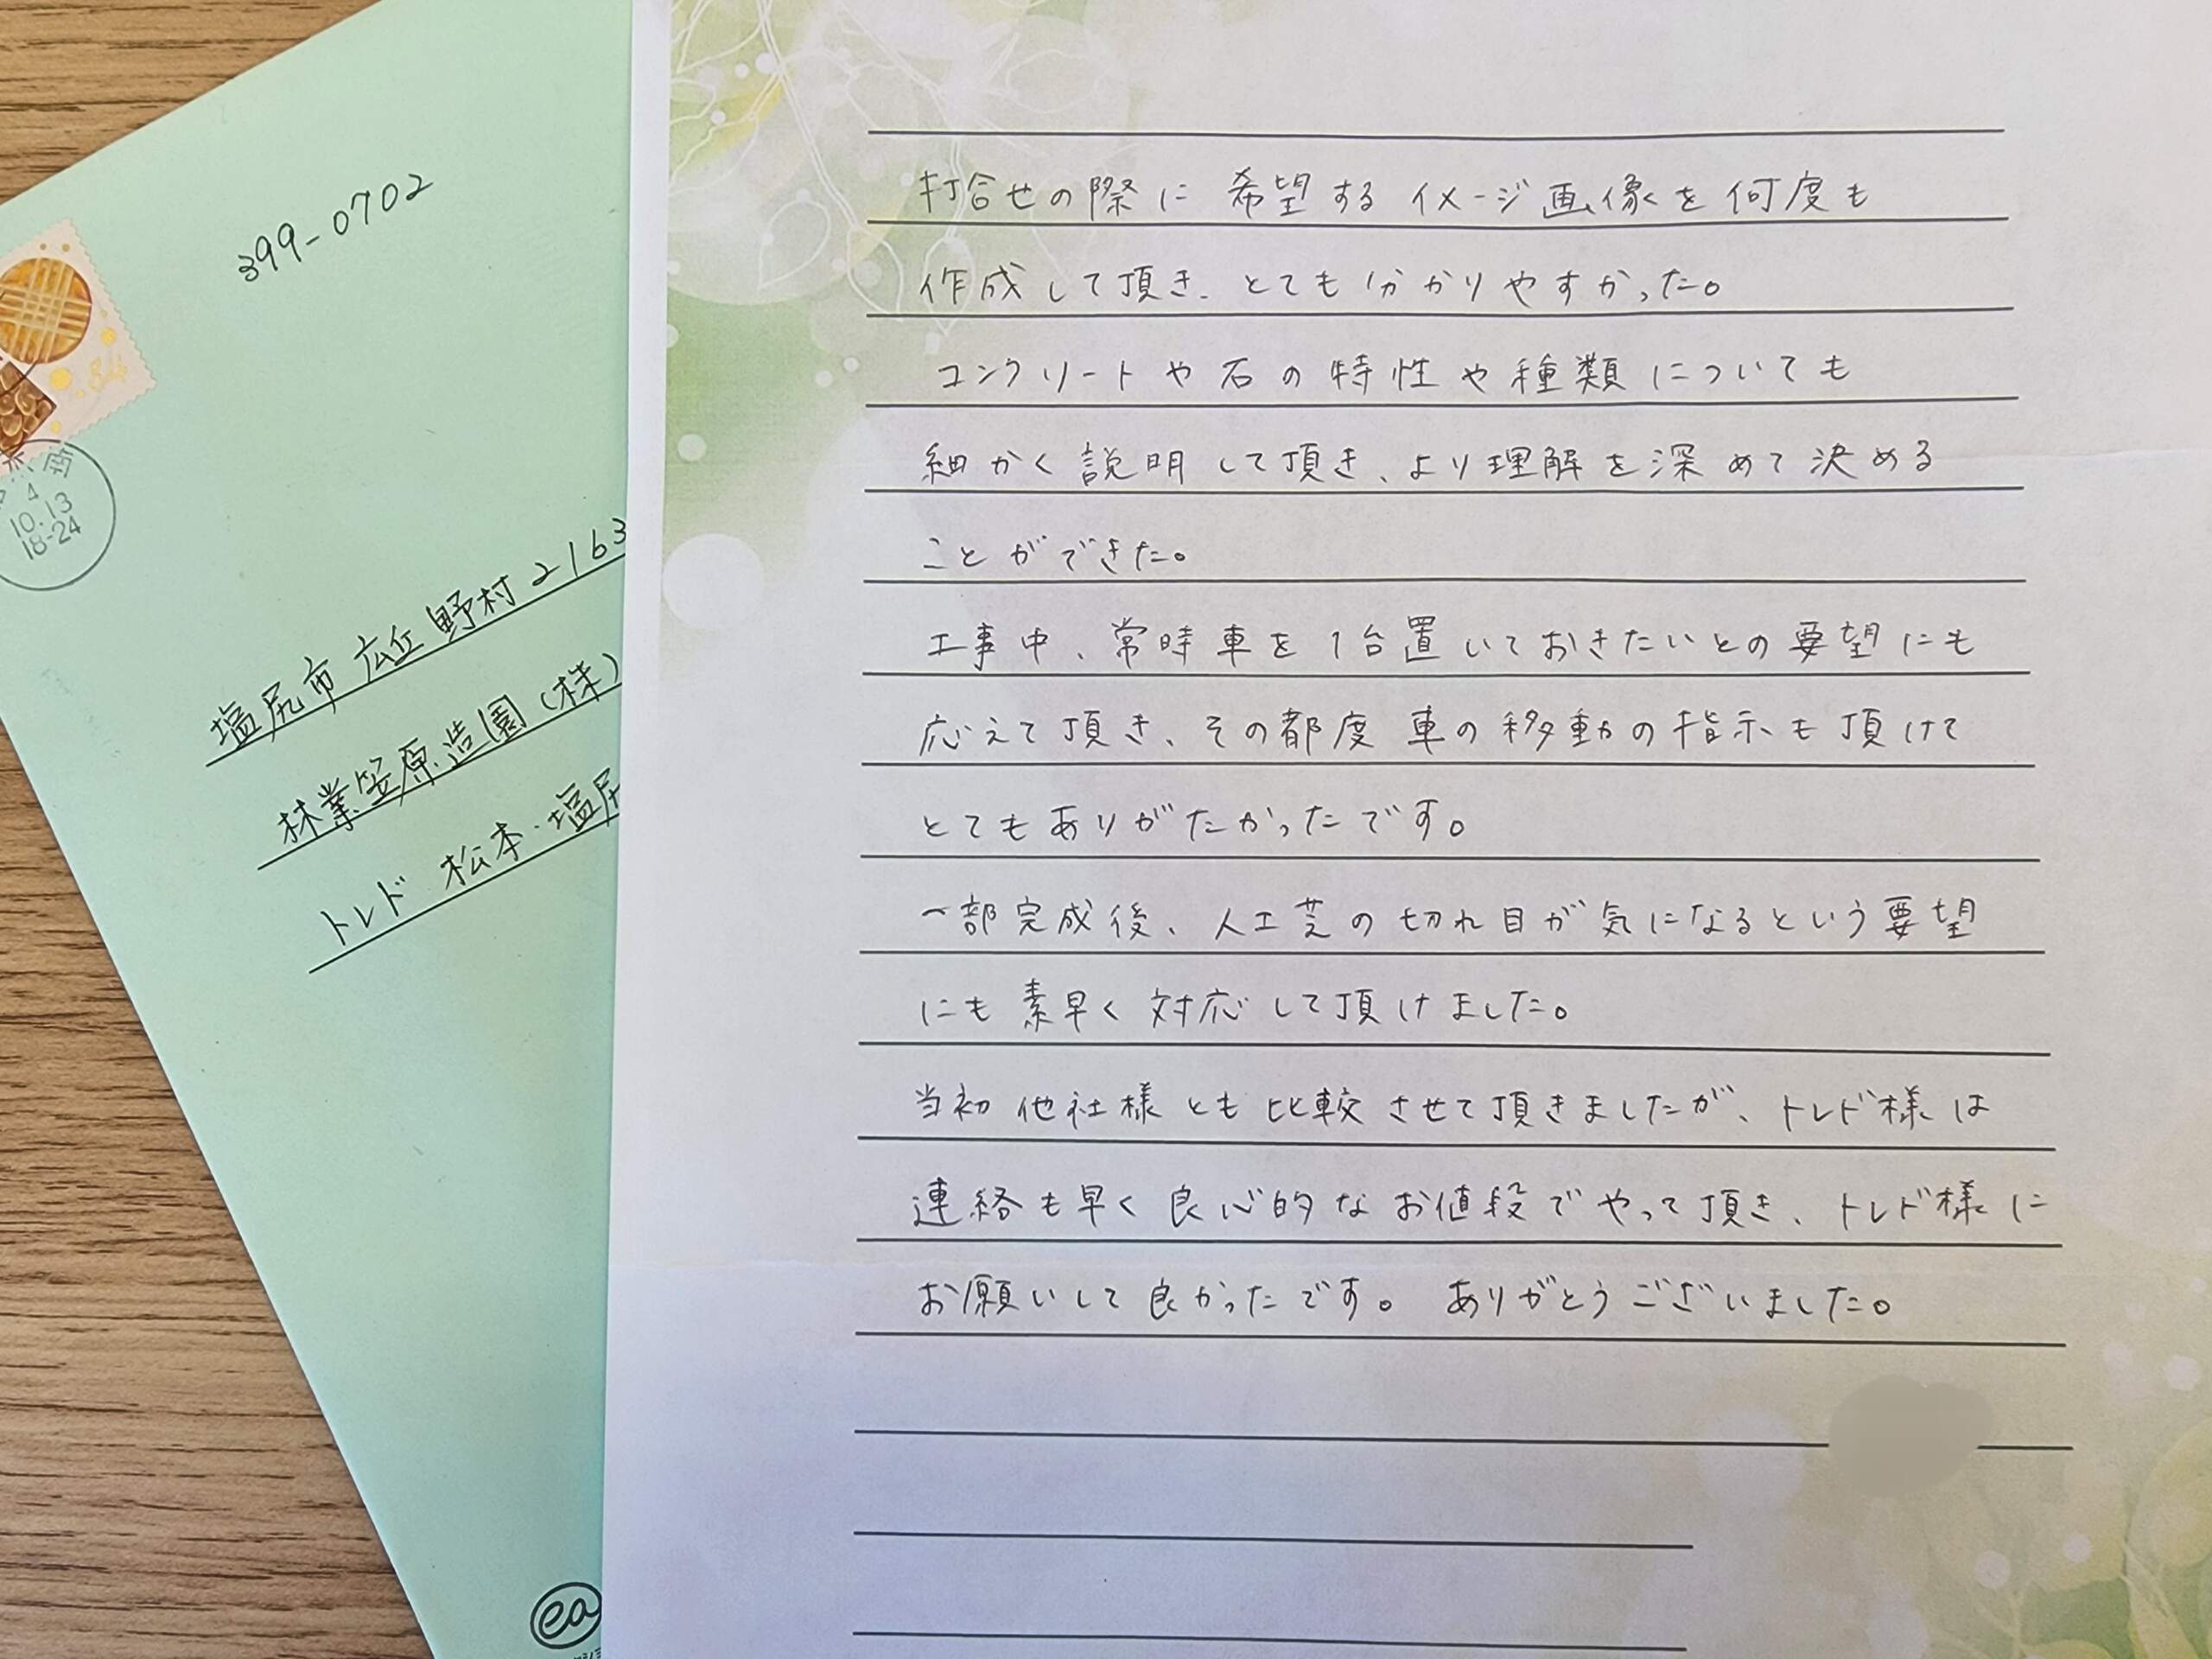 399-0702
塩尻市 広丘 野村 2163
林業笠原造園(様)
トレド 松本・塩尻
84
4
10.13
18-24
ea
打合せの際に 希望する イメージ画像を何度も
作成して頂き、とても分かりやすかった。
コンクリートや石の特性や種類についても
細かく説明して頂き、より理解を深めて決める
ことができた。
工事中、常時車を1台置いておきたいとの要望にも
応えて頂き、その都度 車の移動の指示も頂けて
とてもありがたかったです。
一部完成後、人工芝の切れ目が気になるという要望
にも素早く対応して頂けました。
当初 他社様とも比較させて頂きましたが、トレド様は
連絡も早く良心的なお値段でやって頂き、トレド様に
お願いして良かったです。 ありがとうございました。